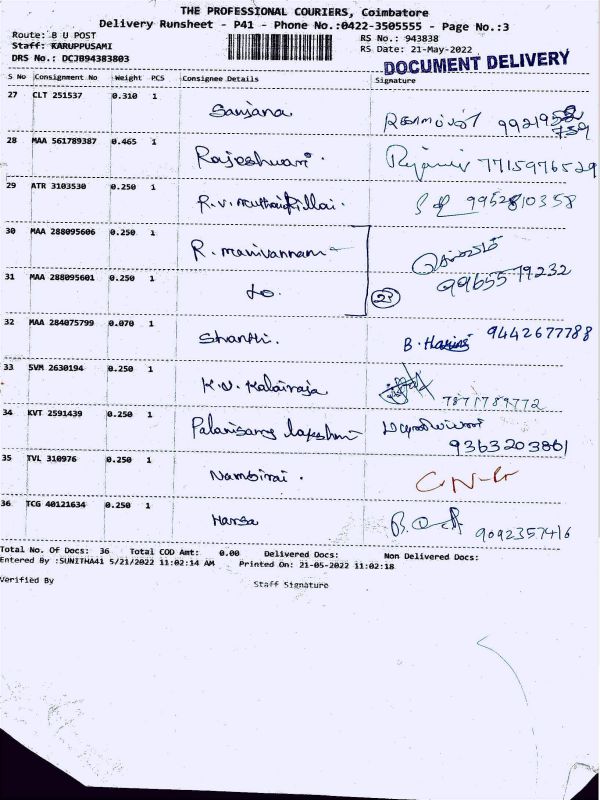 THE PROFESSIONAL COURIERS, Coimbatore
Delivery Runsheet - P41 - Phone No.:0422-3505555 - Page No.:3
Route: B U POST
RS No.: 943838
Staff: KARUPPUSAMI
RS Date: 21-May-2022
DRS No.: DCJB94383803
DOCUMENT DELIVERY
S No Consignment No Weight PCS Consignee Details Signature
27 CLT 251537 0.310 1 Sanjana 9921958
759
28 MAA 561789387 0.465 1 Rajeshwari. 7715976529
29 ATR 3103530 0.250 1 R.V. 9952810358
30 MAA 288095606 0.250 1 R. manivannan
31 MAA 288095601 0.250 1 do. 23 9965579232
32 MAA 284075799 0.070 1 Shanthi. B. Harini 9442677788
33 SVM 2630194 0.250 1 K.V. Kalairaja 7871789772
34 KVT 2591439 0.250 1 Palanisamy lakshmi
9363203861
35 TVL 310976 0.250 1 Nambirai.
36 TCG 40121634 0.250 1 Harsa 9092357416
Total No. Of Docs: 36 Total COD Amt: 0.00 Delivered Docs: Non Delivered Docs:
Entered By :SUNITHA41 5/21/2022 11:02:14 AM Printed On: 21-05-2022 11:02:18
Verified By Staff Signature